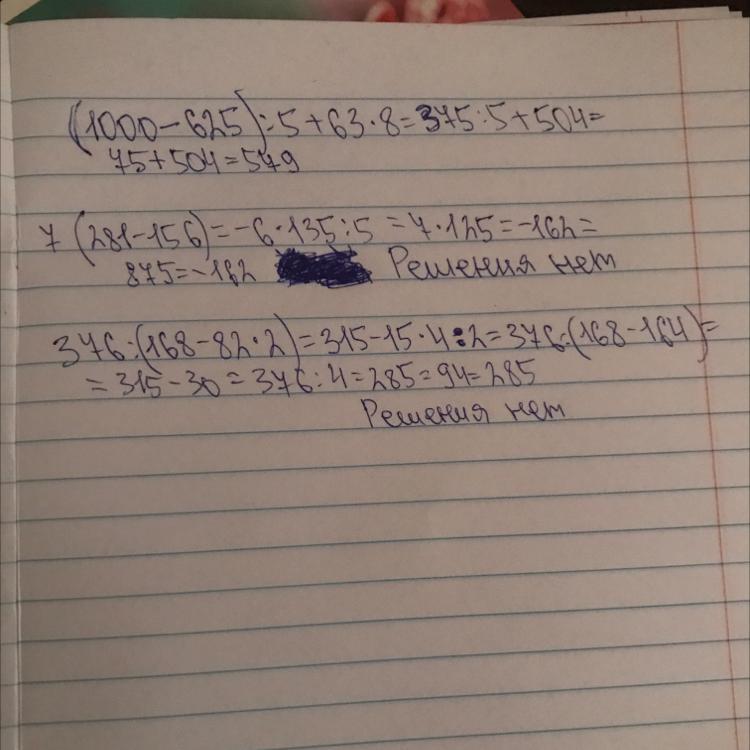 (1000-625):5+63·8=375:5+504=
75+504=579
7 (281-156)=-6·135:5=7·125=-162=
875=-162 Решения нет
376:(168-82·2)=315-15·4:2=376:(168-164)=
=315-30=376:4=285=94=285
Решения нет